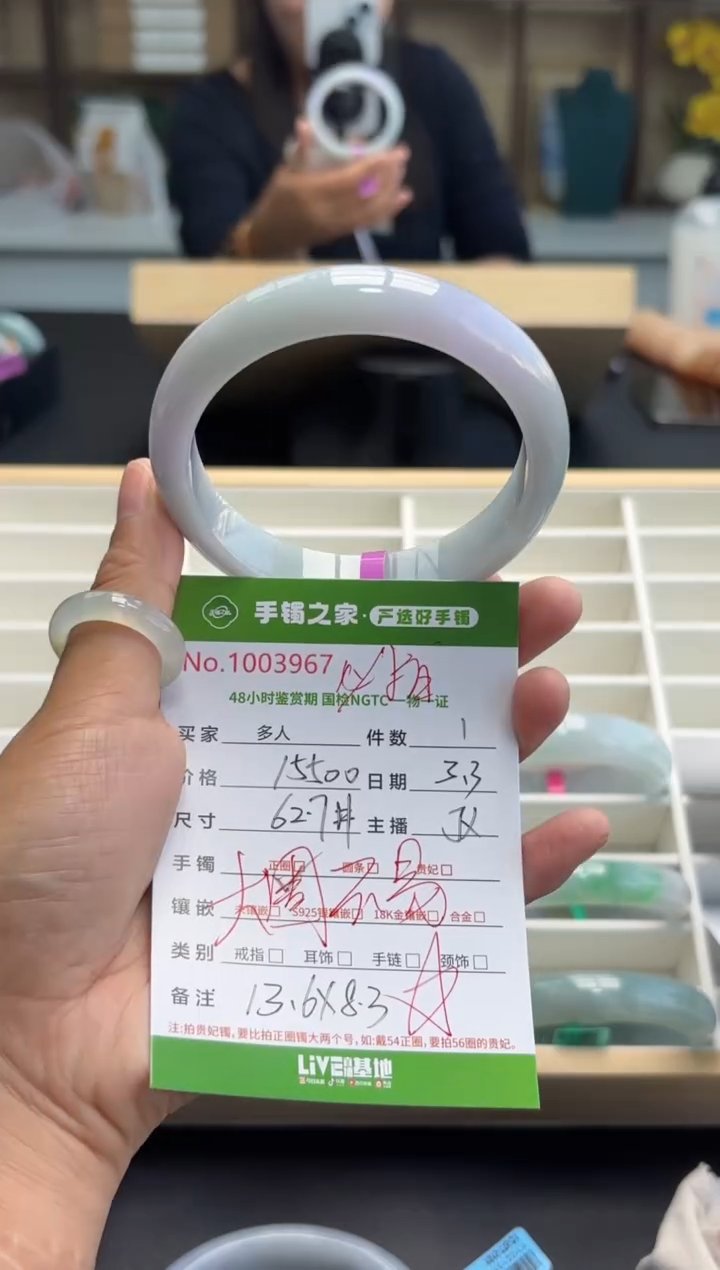 手镯之家·严选好手镯
No.1003967 必拍
48小时鉴赏期 国检NGTC一物一证
买家 多人 件数 1
价格 15500 日期 3.3
尺寸 62.7# 主播
手镯 正圈□ 圆条□ 贵妃□
镶嵌 未镶嵌□ S925银镶嵌□ 18K金镶嵌□ 合金□
大圈不易
类别 戒指□ 耳饰□ 手链□ 颈饰□
备注 13.6X8.3
注:拍贵妃镯,要比拍正圈镯大两个号,如:戴54正圈,要拍56圈的贵妃。
LiVE基地